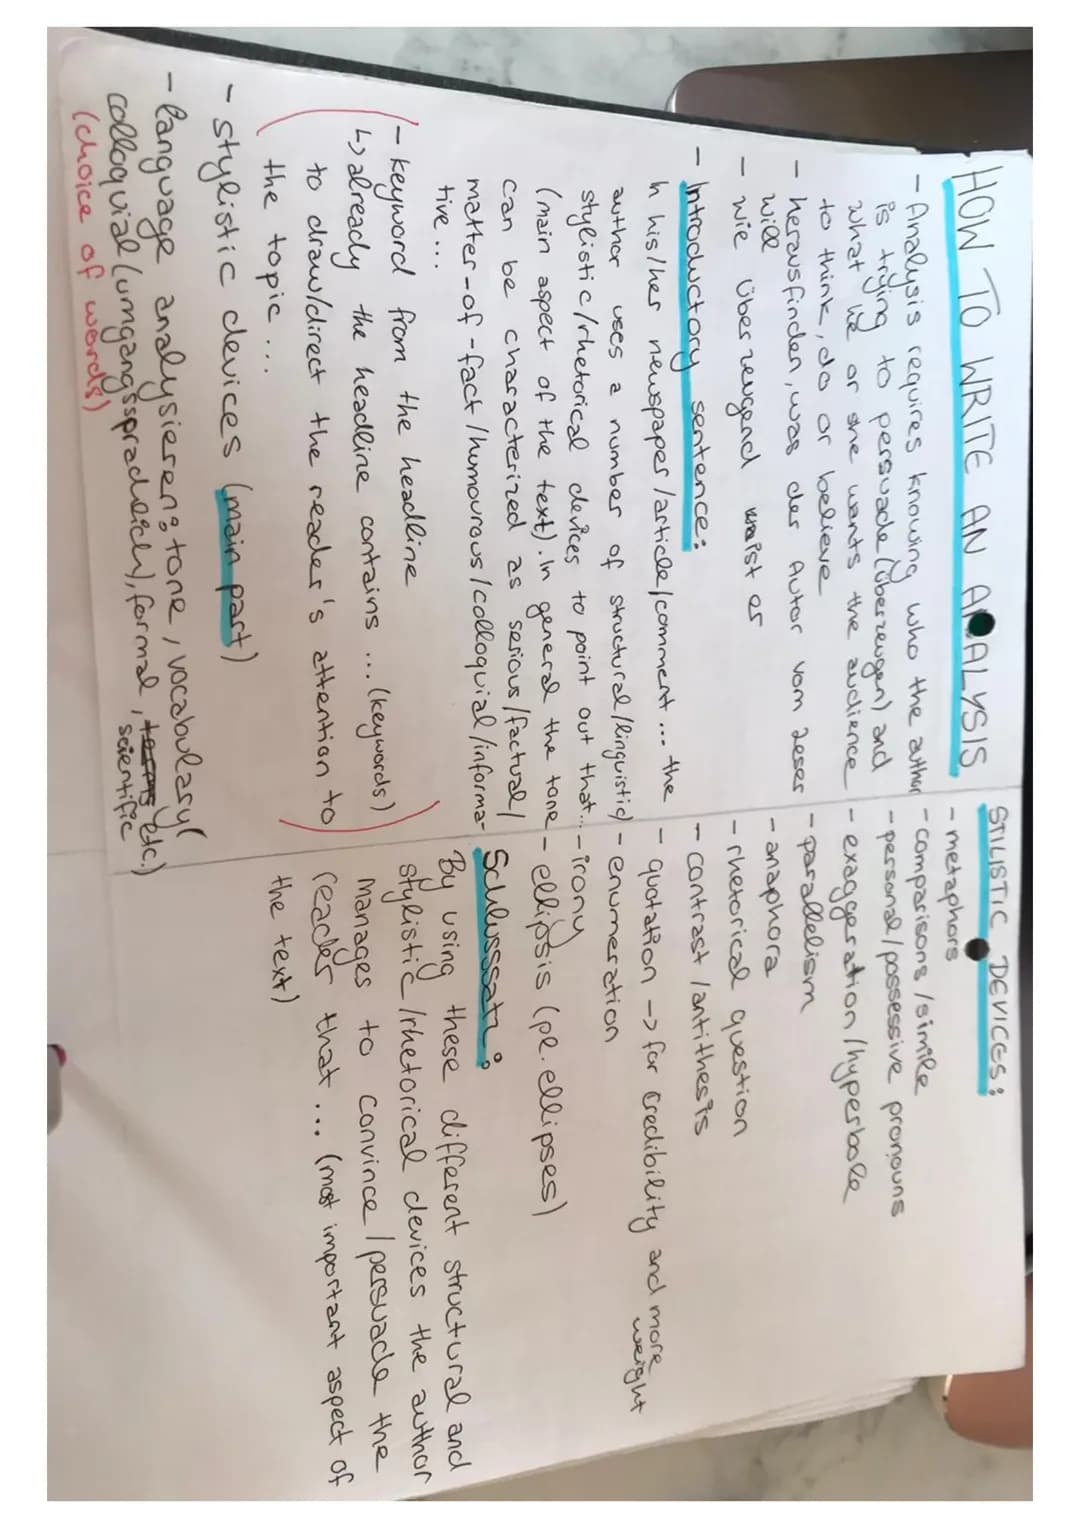 HOW TO WRITE AN ANALYSIS
- Analysis requires knowing who the author
is trying to persuade (überzeugen) and
what he or she wants the audience
to think, do or believe
- herausfinden, was der Autor vom Leser
will
- wie überzeugend ist er
- Introductory sentence:
In his/her newspaper/article/comment ... the
author uses a number of structural/linguistic/
stylistic/rhetorical devices to point out that...
(main aspect of the text). In general the tone
can be characterized as serious/factual/
matter-of-fact/humourous/colloquial/informa-
tive...
(- keyword from the headline
↳ already the headline contains ... (keywords)
to draw/direct the reader's attention to
the topic ... )
- stylistic devices (main part)
- language analysieren: tone, vocabulary (
colloquial (umgangssprachlich), formal, etc.)
scientific
(choice of words)
STILISTIC DEVICES:
- metaphors
- comparisons/simile
- personal/possessive pronouns
- exaggeration/hyperbole
- parallelism
- anaphora
- rhetorical question
- contrast/antithesis
- quotation -> for credibility and more
weight
- enumeration
- irony
- ellipsis (pl. ellipses)
Schlusssatz:
By using these different structural and
stylistic/rhetorical devices the author
manages to convince/persuade the
reader that ... (most important aspect of
the text)